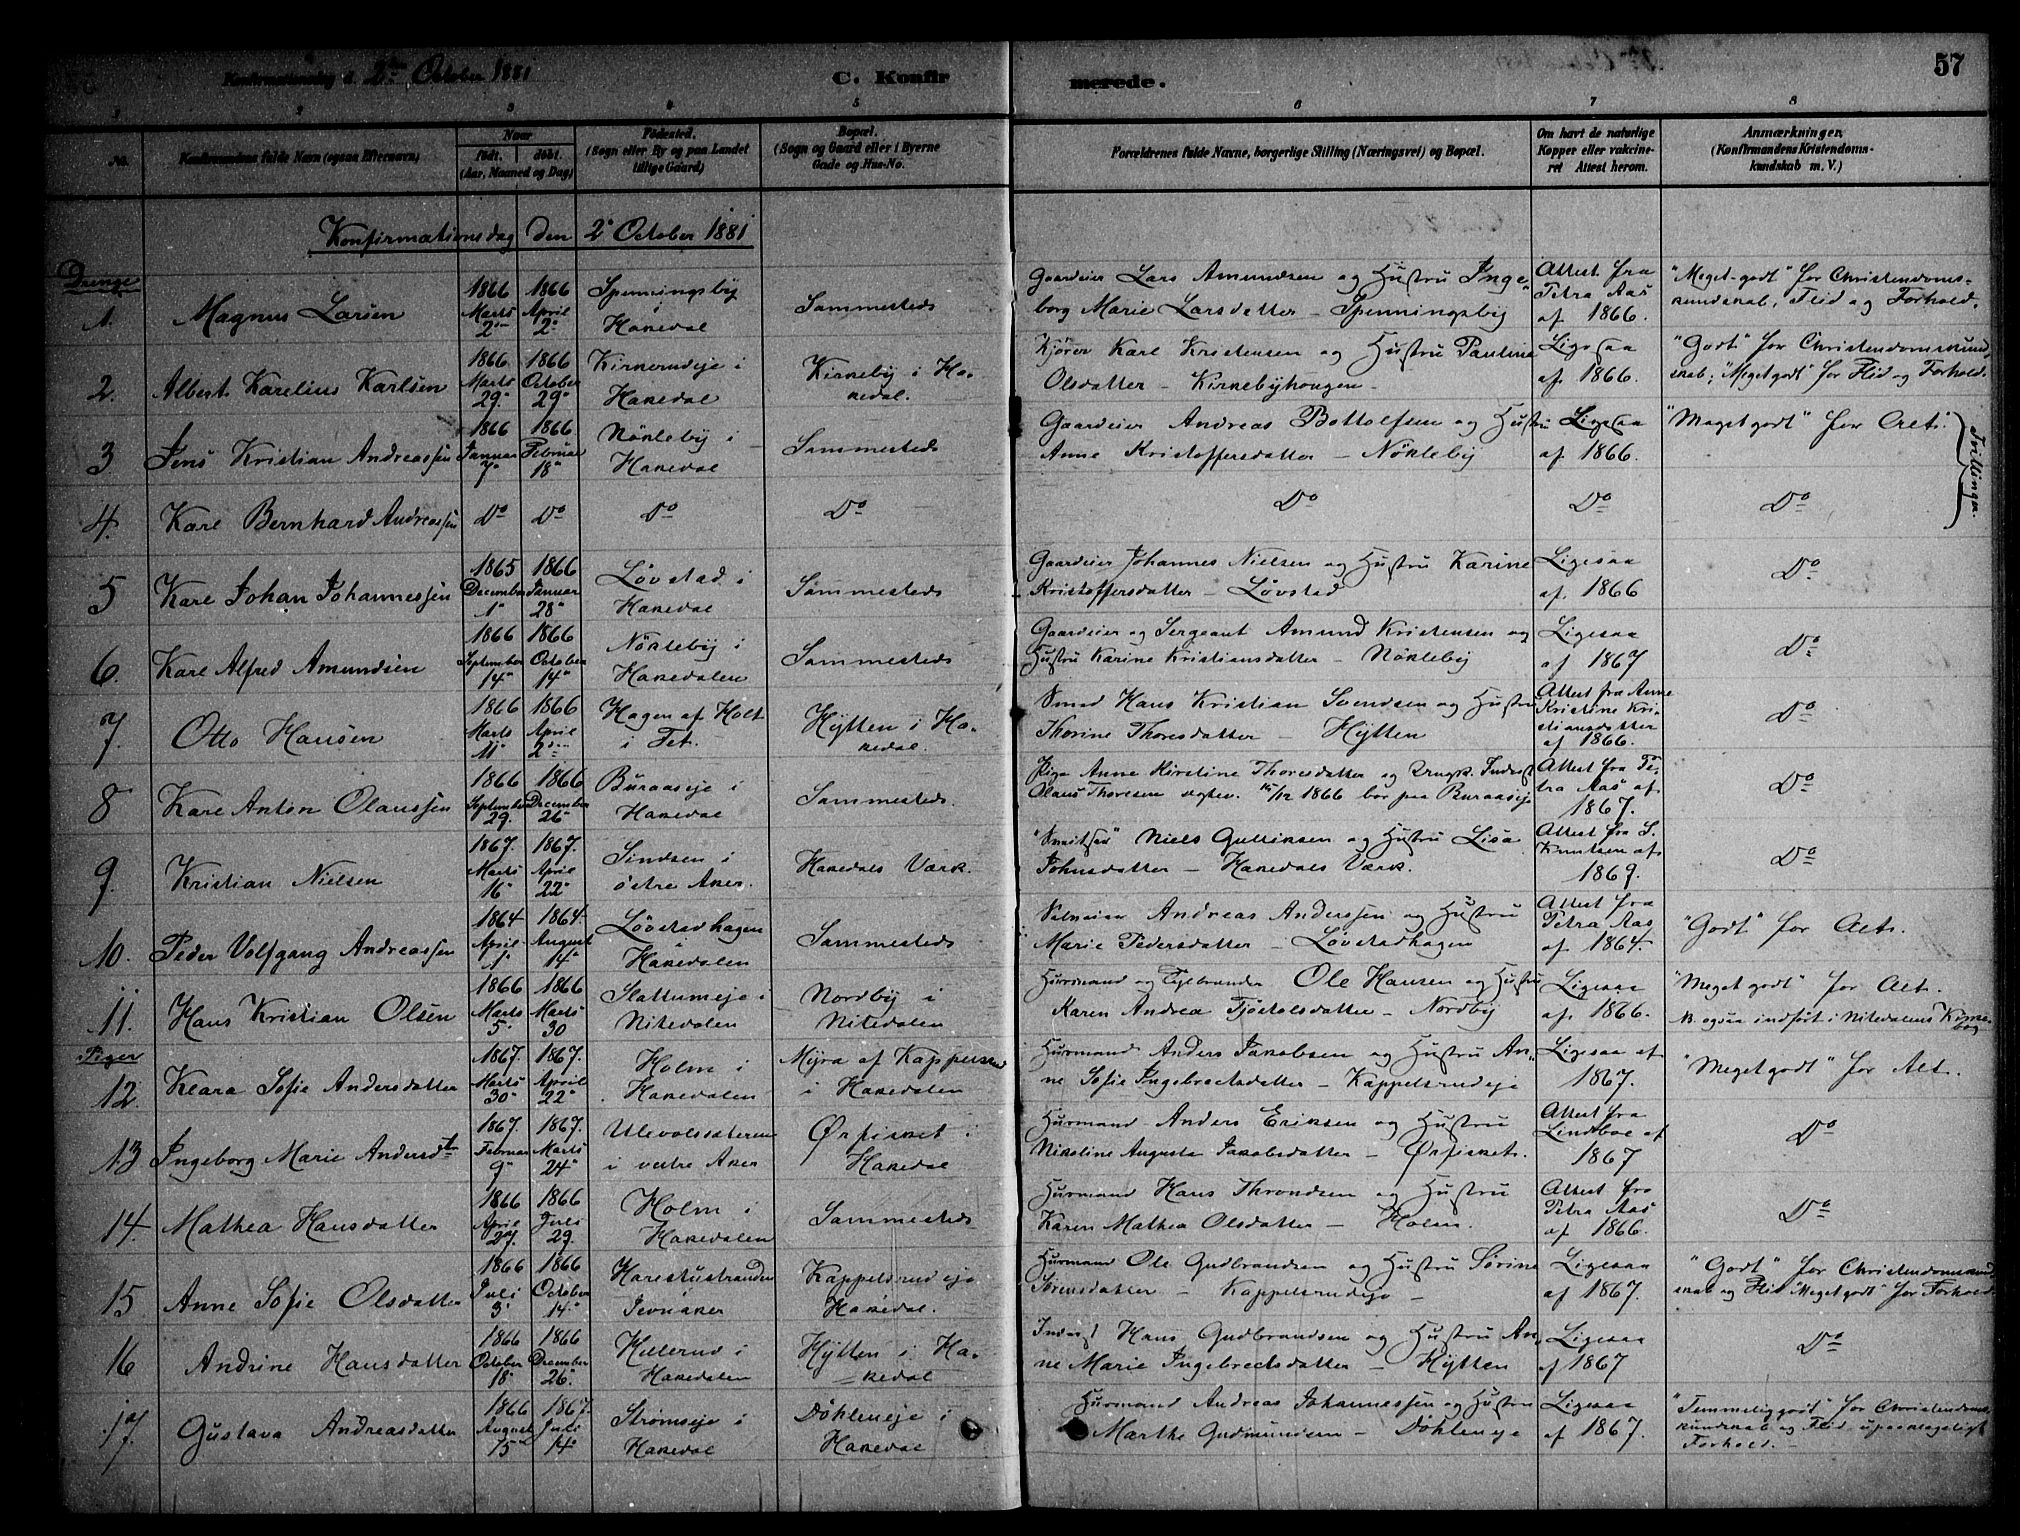 Konfirmationsdag d. 2den October 1881
C. Konfir
merede.
57
1 2 3 4 5 6 7 8
No.
Konfirmandens fulde Navn (ogsaa Efternavn)
Naar
født. døbt.
(Aar, Maaned og Dag)
Fødested.
(Sogn eller By og paa Landet
tillige Gaard)
Bopæl.
(Sogn og Gaard eller i Byerne
Gade og Hus-No.
Forældrenes fulde Navne, borgerlige Stilling (Næringsvei) og Bopæl.
Om havt de naturlige
Kopper eller vakcine-
ret Attest herom.
Anmærkninger,
(Konfirmandens Kristendoms-
kundskab m. V.)
Konfirmationsdag den 2' October 1881
Drenge
1. Magnus Larsen
1866 Marts 2den
1866 April 2'
Spenningsby i
Hakedal
Sammesteds
Gaardeier Lars Amundsen og Hustru Inge-
borg Marie Larsdatter – Spenningsby
Attest fra
Petra Aas
af 1866.
"Meget godt" for Christendoms-
kundskab, Flid og Forhold.
2. Albert Karelius Karlsen
1866 Marts 29'
1866 October 29'
Kirkerudeje i
Hakedal
Kirkeby i Ha-
kedal.
Kjører Karl Kristensen og Hustru Pauline
Olsdatter – Kirkebyhougen –
Ligesaa
af 1866.
"Godt" for Christendomskund-
skab; "Meget godt" for Flid og Forhold.
3 Jens Kristian Andreassen
1866 Januar 7'
1866 Februar 18'
Nökleby i
Hakedal
Sammesteds
Gaardeier Andreas Bottolfsen og Hustru
Anne Kristoffersdatter – Nökleby
Ligesaa
af 1866.
"Meget godt" for Alt.
Tvillinger.
4. Karl Bernhard Andreassen
Do Do Do Do Do Do Do
5 Karl Johan Johannessen
1865 December 1'
1866 Januar 28'
Løvstad i
Hakedal
Sammesteds
Gaardeier Johannes Nielsen og Hustru Karine
Kristoffersdatter – Løvstad
Ligesaa
af 1866
Do
6. Karl Alfred Amundsen
1866 September 14'
1866 October 14'
Nökleby i
Hakedalen
Sammesteds
Gaardeier og Sergeant Amund Kristensen og
Hustru Karine Kristiansdatter – Nökleby
Ligesaa
af 1867
Do
7. Otto Hansen
1866 Marts 11'
1866 April 2den
Hagen af Holt
i Fet.
Hytten i Ha-
kedal.
Smed Hans Kristian Svendsen og Hustru
Thorine Thoresdatter – Hytten
Attest fra Anne
Kristine Kri-
stiansdatter
af 1866.
Do
8 Karl Anton Olaussen
1866 September 29.
1866 December 26'
Buraaseje i
Hakedal
Sammesteds.
Pige Anne Kirstine Thoresdatter og Ungk. Inderst
Olaus Thoresen 1866 bor paa Buraaseje
Attest fra Pe-
tra Aas af
1867.
Do
9. Kristian Nielsen
1867. Marts 16'
1867. April 22'
Sindsen i
östre Aker.
Hakedals Værk.
Niels Gulliksen og Hustru Lisa
Johnsdatter – Hakedals Værk.
Attest fra S.
Knutsen af
1869.
Do
10. Peder Volfgang Andreassen
1864 April 1'
1864 August 14'
Løvstadhagen
i Hakedalen
Sammesteds
Selveier Andreas Anderssen og Hustru
Marie Pedersdatter – Løvstadhagen
Attest fra
Petra Aas
af 1864.
"Godt" for Alt.
11. Hans Kristian Olsen
1866 Marts 5'
1866 Marts 30
Slattumeje i
Nitedalen
Nordby i
Nitedalen
Husmand og Teglbrænder Ole Hansen og Hustru
Karen Andrea Tjøstolsdatter – Nordby
Ligesaa
af 1866.
"Meget godt" for Alt.
NB. ogsaa indført i Nitedalens Kirke-
bog
Piger
12. Klara Sofie Andersdatter
1867. Marts 30'
1867. April 22'
Holm i
Hakedalen
Myra af Kappelsrud
i Hakedalen
Husmand Anders Jakobsen og Hustru An-
ne Sofie Ingebretsdatter – Kappelsrudeje
Ligesaa af
1867.
"Meget godt" for Alt.
13 Ingeborg Marie Andersdtr
1867. Februar 9'
1867. Marts 24'
Ulevolsæteren
i vestre Aker
Ørfisket i
Hakedal
Husmand Anders Eriksen og Hustru
Nikoline Augusta Jakobsdatter – Ørfisket.
Attest fra
Lindboe af
1867
Do
14. Mathea Hansdatter
1866 April 27.
1866 Juli 29.
Holm i
Hakedalen
Sammesteds
Husmand Hans Throndsen og Hustru
Karen Mathea Olsdatter – Holm.
Attest fra
Petra Aas
af 1866.
Do
15 Anne Sofie Olsdatter
1866 Juli 3'
1866 October 14'
Harestustranden
Jevnaker
Kappelsrudeje
Hakedal.
Husmand Ole Gudbrandsen og Hustru Sørine
Sörensdatter – Kappelsrudeje –
Ligesaa
af 1867.
"Godt" for Christendomskund-
skab og Flid "Meget godt" for Forhold.
16 Andrine Hansdatter
1866 October 18'
1866 December 26'
Hellerud i
Hakedalen
Hytten i Ha-
kedal
Inderst Hans Gudbrandsen og Hustru An-
ne Marie Ingebretsdatter – Hytten
Ligesaa
af 1867
Do
17. Gustava Andreasdatter
1866 August 15'
1867. Juli 14'
Strømseje i
Hakedal
Döhleneje i
Hakedal
Husmand Andreas Johannessen og Hustru
Marthe Gudmundsen – Döhleneje
Ligesaa
af 1867.
"Temmelig godt" for Christendoms-
kundskab og Flid – upaaklageligt
Forhold. –